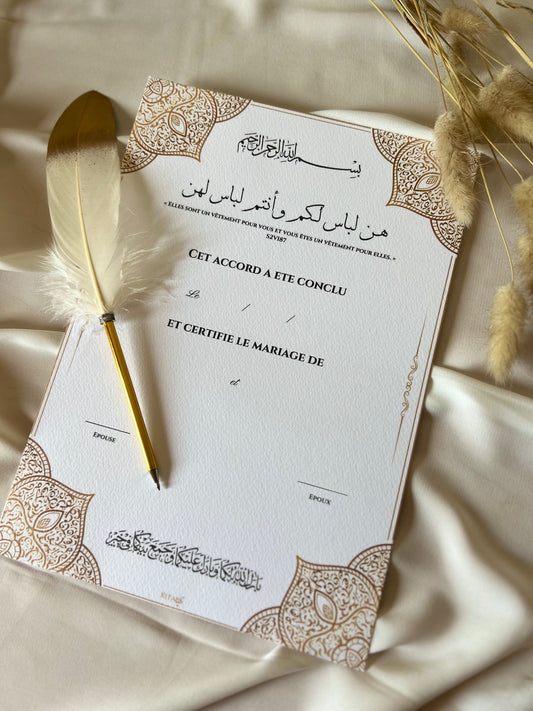 بسم الله الرحمن الرحيم
هن لباس لكم وأنتم لباس لهن
« Elles sont un vêtement pour vous et vous êtes un vêtement pour elles. »
S2V187
Cet accord a ete conclu
Le / /
et certifie le mariage de
et
Epouse
Epoux
بارك الله لكما وبارك عليكما وجمع بينكما في خير